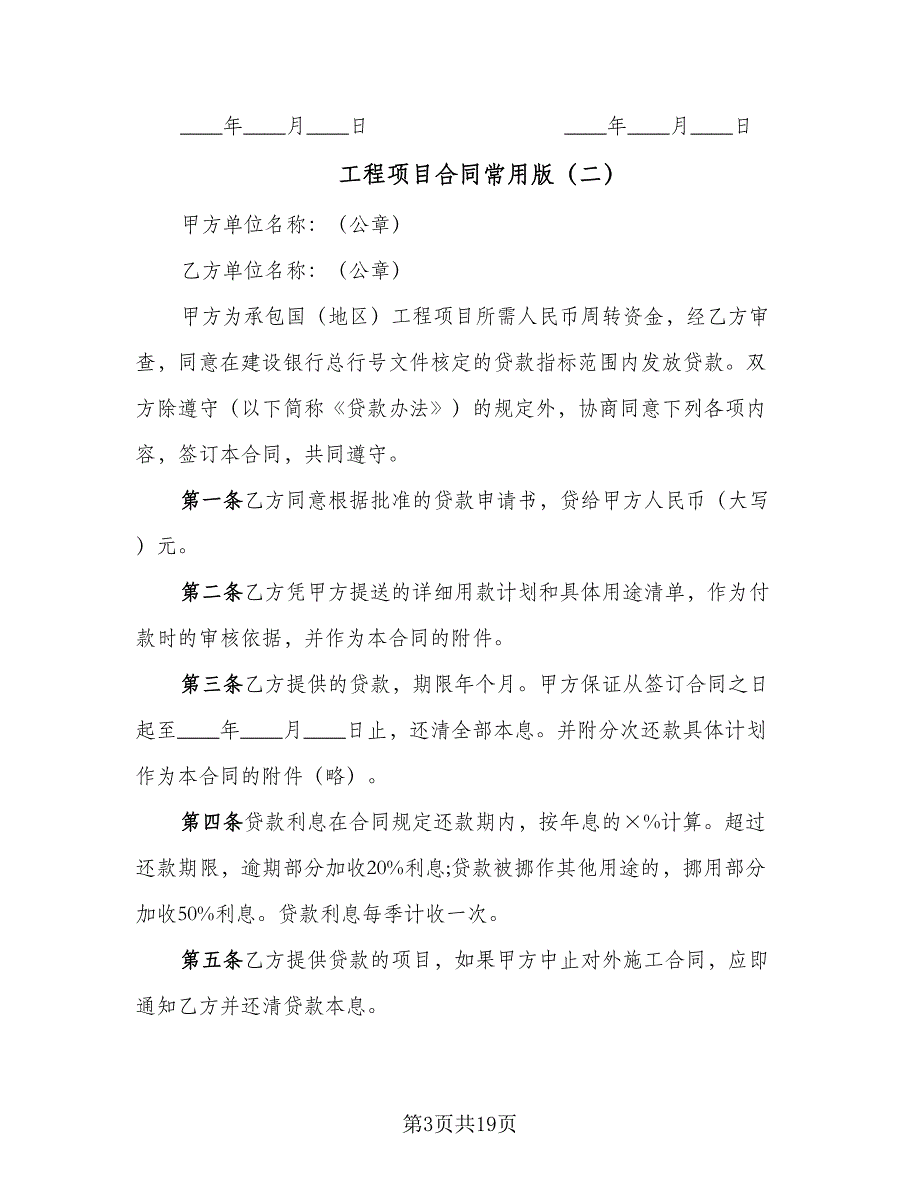 ____年____月____日 ____年____月____日
工程项目合同常用版（二）
甲方单位名称：（公章）
乙方单位名称：（公章）
甲方为承包国（地区）工程项目所需人民币周转资金，经乙方审
查，同意在建设银行总行号文件核定的贷款指标范围内发放贷款。双
方除遵守（以下简称《贷款办法》）的规定外，协商同意下列各项内
容，签订本合同，共同遵守。
第一条乙方同意根据批准的贷款申请书，贷给甲方人民币（大写
）元。
第二条乙方凭甲方提送的详细用款计划和具体用途清单，作为付
款时的审核依据，并作为本合同的附件。
第三条乙方提供的贷款，期限年个月。甲方保证从签订合同之日
起至____年____月____日止，还清全部本息。并附分次还款具体计划
作为本合同的附件（略）。
第四条贷款利息在合同规定还款期内，按年息的×%计算。超过
还款期限，逾期部分加收20%利息;贷款被挪作其他用途的，挪用部分
加收50%利息。贷款利息每季计收一次。
第五条乙方提供贷款的项目，如果甲方中止对外施工合同，应即
通知乙方并还清贷款本息。
第3页共19页